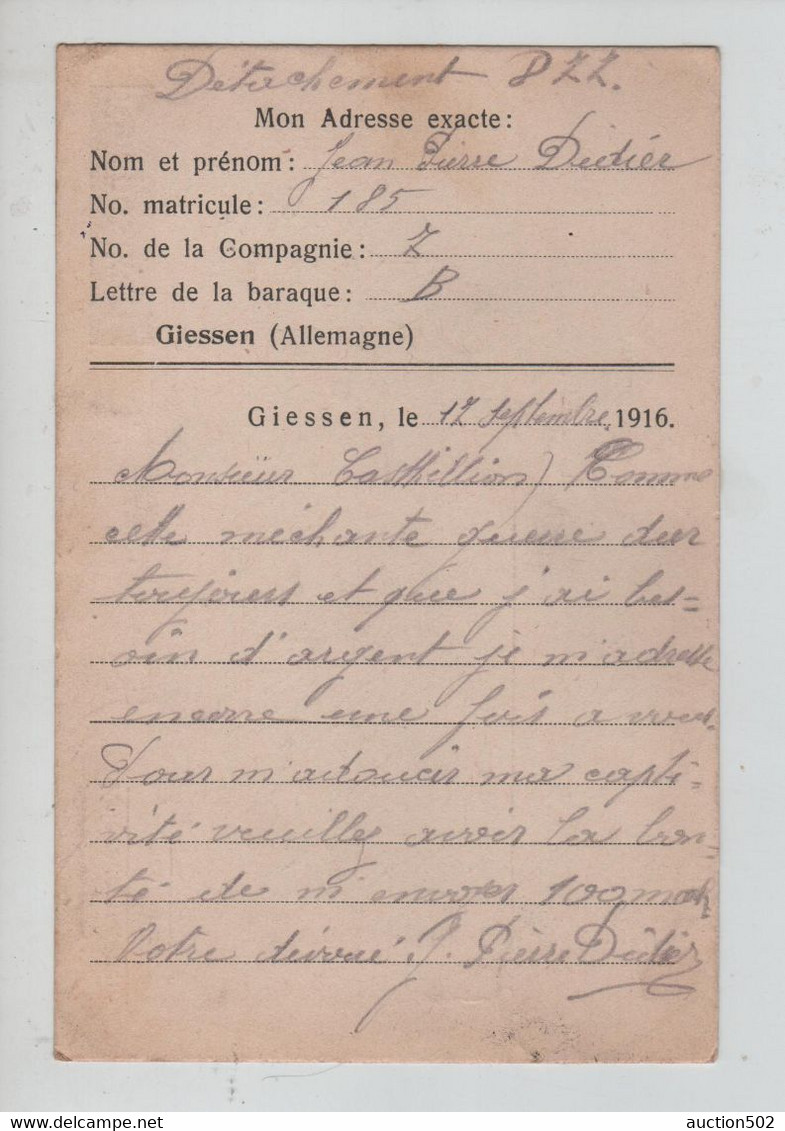 Détachement
Mon Adresse exacte:
Nom et prénom: Jean Pierre Didier
No. matricule: 185
No. de la Compagnie: 7
Lettre de la baraque: B
Giessen (Allemagne)
Giessen, le 17 septembre 1916.
Monsieur Comme
cette méchante guerre dur
toujours et que j'ai bes=
oin d'argent je m'adresse
encorre une fois a vous.
Pour m'adoucir ma capti-
vité veuillez avoir la bon-
té de m'envoyer 100
Votre dévoué J. Pierre Didier
auction502